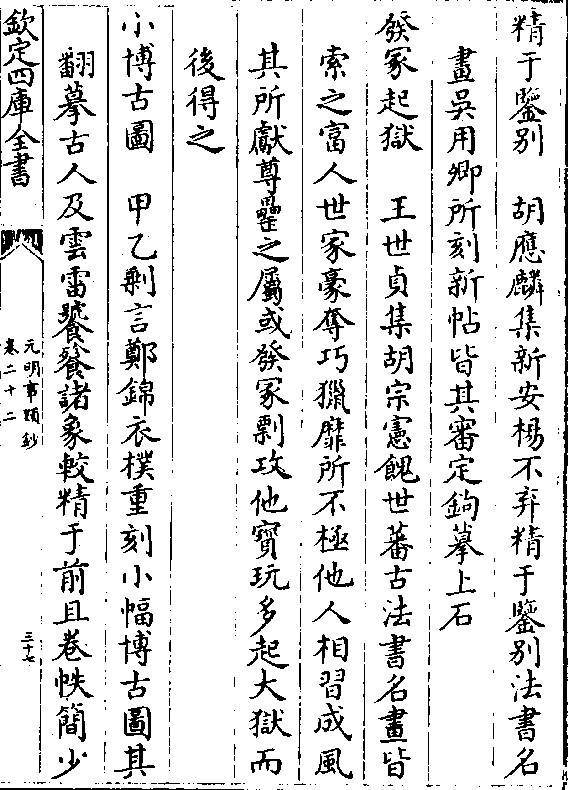 精于鑒别　胡應麟集新安楊不弃精于鑒别法書名
畫吳用卿所刻新帖皆其審定鉤摹上石
發冢起獄　王世貞集胡宗憲餽世蕃古法書名畫皆
索之富人世家豪奪巧獵靡所不極他人相習成風
其所獻尊罍之屬或發冢剽攻他寶玩多起大獄而
後得之
小博古圖　甲乙剩言鄭錦衣樸重刻小幅博古圖其
翻摹古人及雲雷饕餮諸象較精于前且卷帙簡少
欽定四庫全書
元明事類鈔
卷二十二
三十七